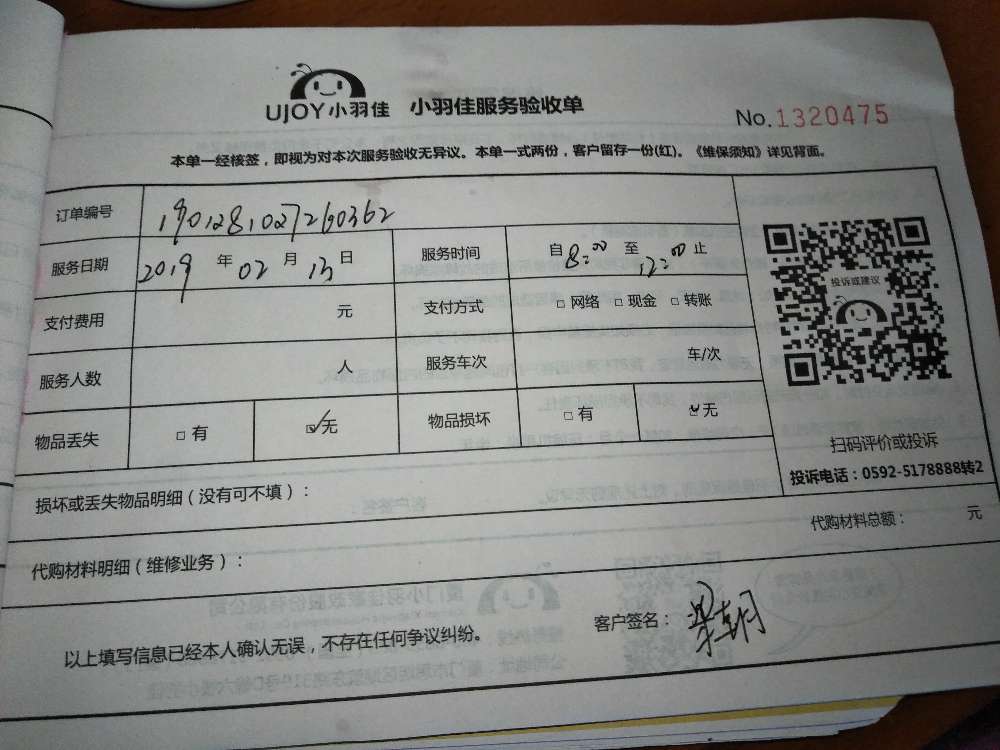 UJOY小羽佳 小羽佳服务验收单
No.1320475
本单一经核签，即视为对本次服务验收无异议。本单一式两份，客户留存一份(红)。《维保须知》详见背面。
订单编号 1901281027260362
服务日期 2019 年 02 月 13 日 服务时间 自 8:00 至 12:00 止
支付费用 元 支付方式 □ 网络 □ 现金 □ 转账
服务人数 人 服务车次 车/次
物品丢失 □ 有 ☑无 物品损坏 □ 有 ☑无
投诉或建议
扫码评价或投诉
投诉电话：0592-5178888转2
损坏或丢失物品明细（没有可不填）：
代购材料明细（维修业务）： 代购材料总额： 元
以上填写信息已经本人确认无误，不存在任何争议纠纷。 客户签名：